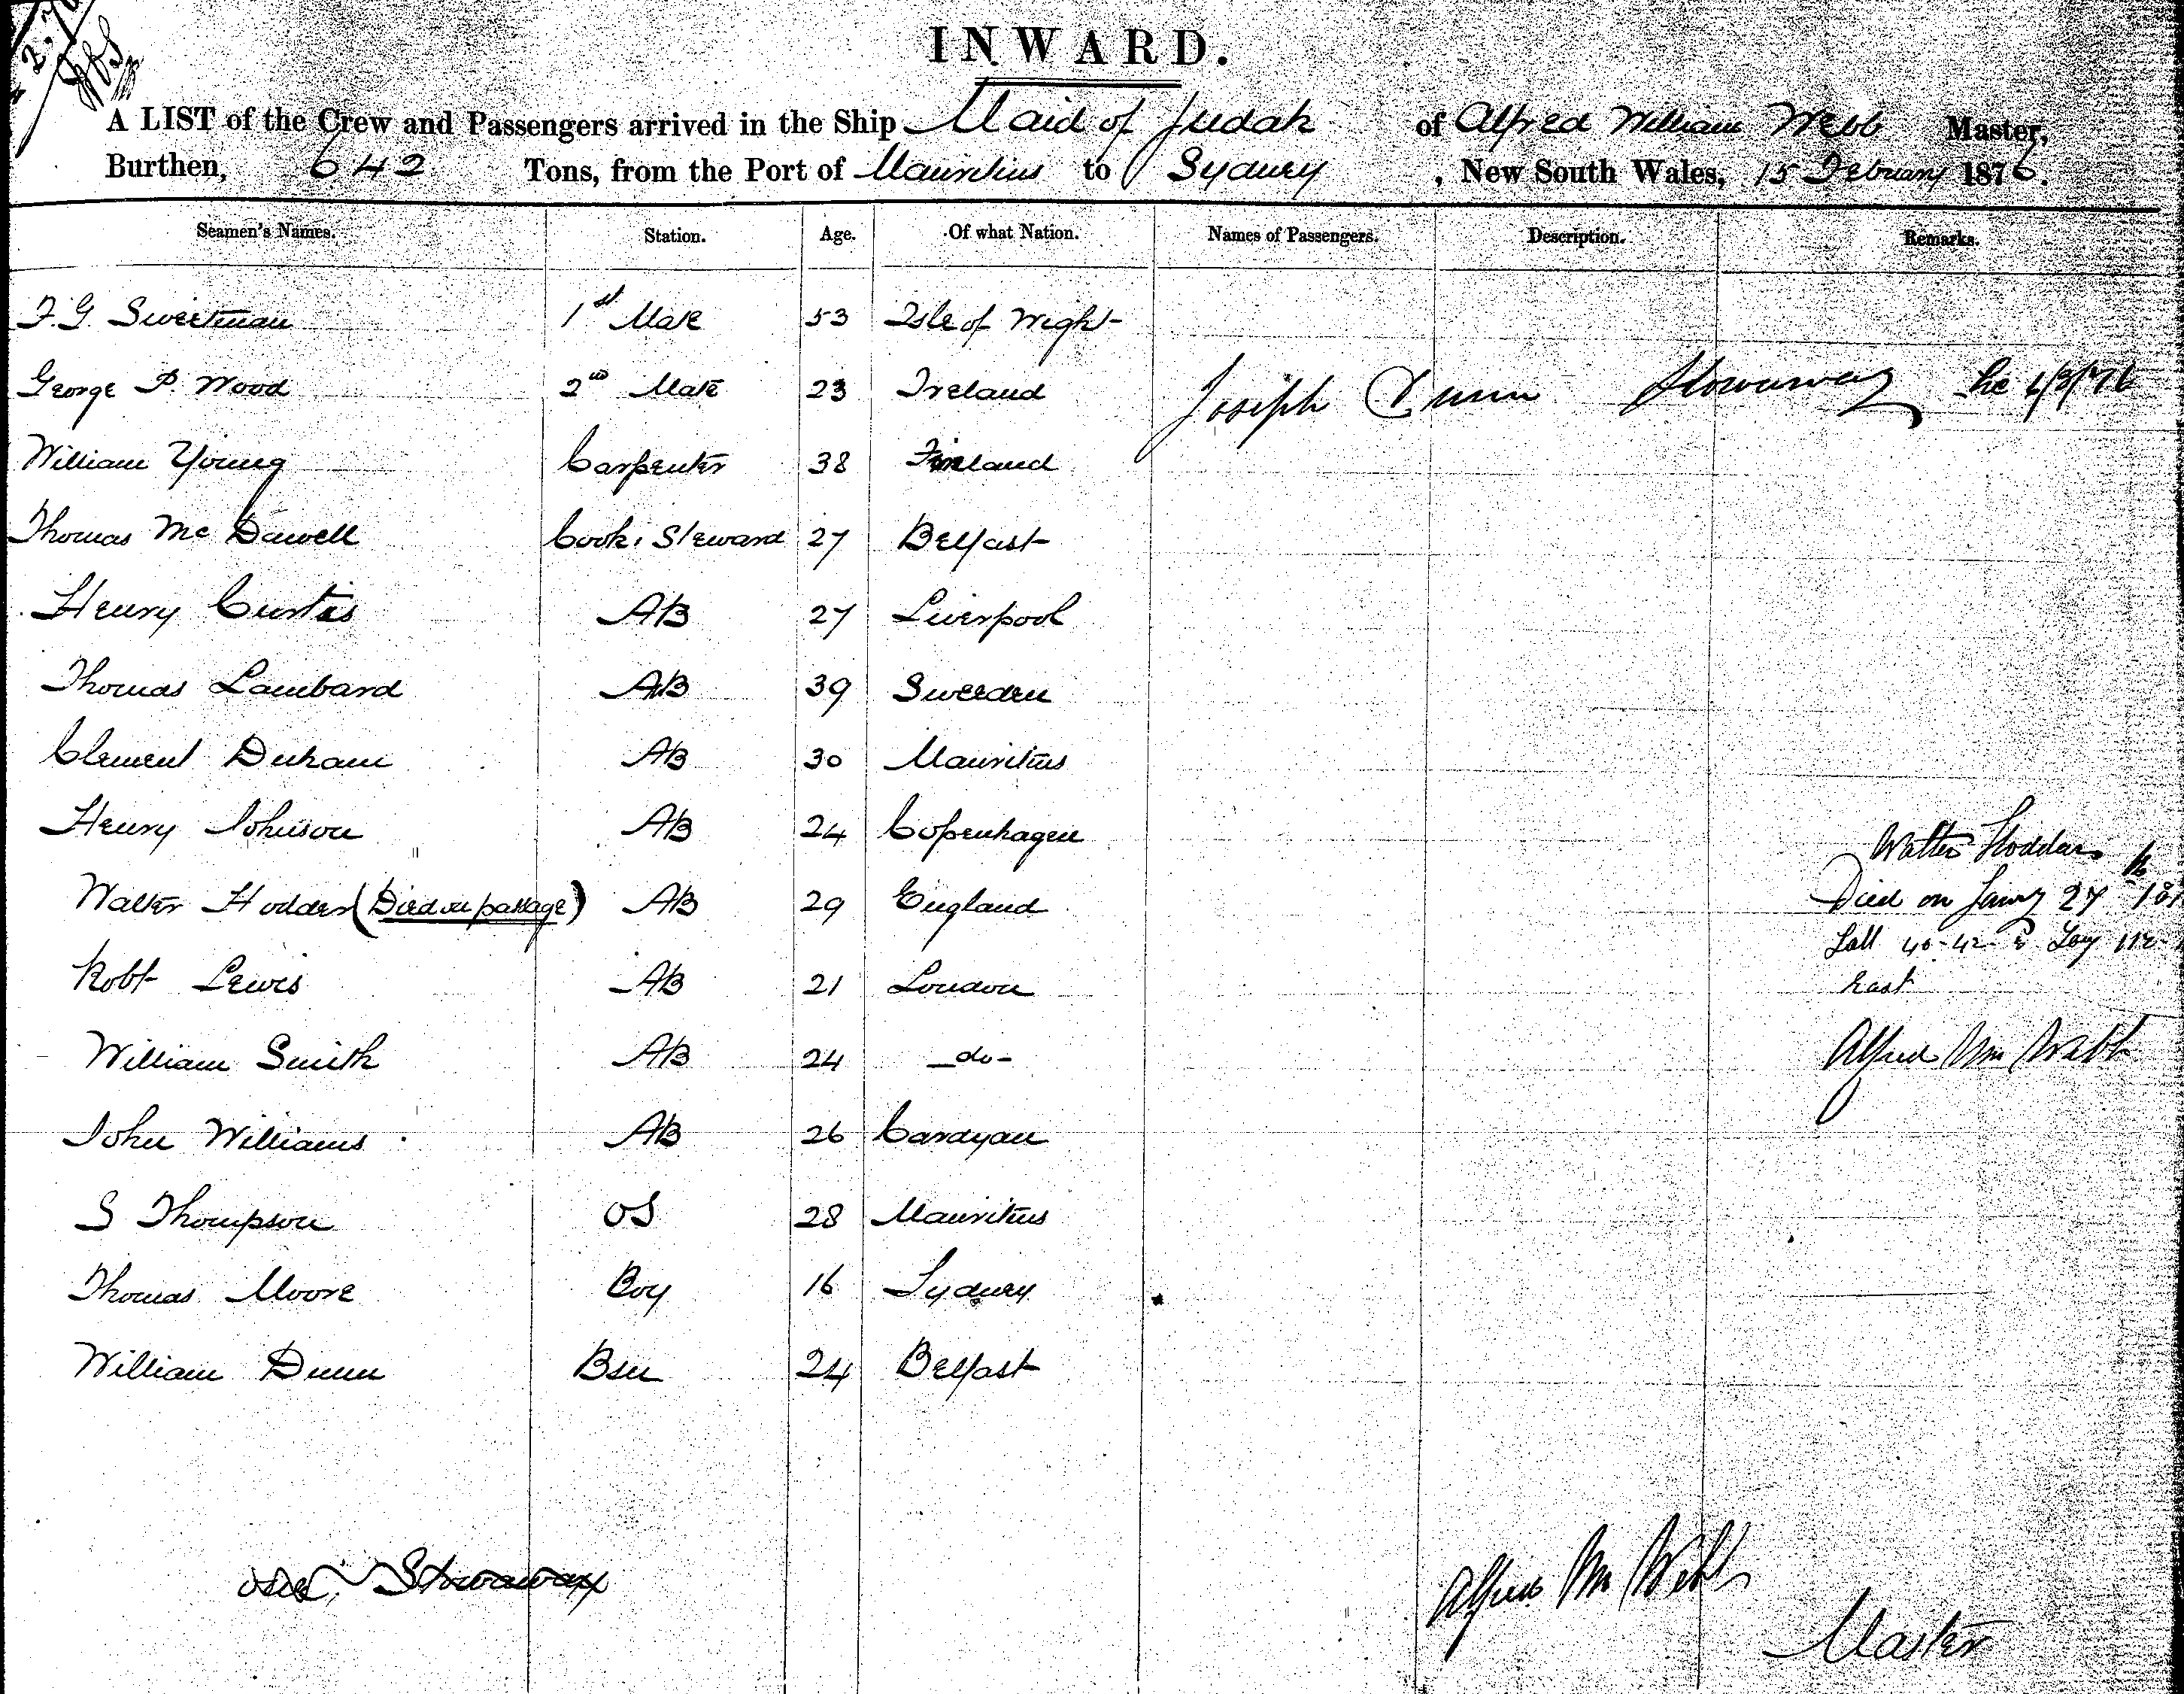 INWARD.
A LIST of the Crew and Passengers arrived in the Ship Maid of Judah of Alfred William Webb Master,
Burthen, 642 Tons, from the Port of Mauritius to Sydney, New South Wales, 15 February 1876.
Seamen's Names. Station. Age. Of what Nation. Names of Passengers. Description. Remarks.
F. G. Sweetman 1st Mate 53 Isle of Wight
George P. Wood 2nd Mate 23 Ireland Joseph Dunn Stowaway
William Young Carpenter 38 Finland
Thomas Mc Dowell Cook & Steward 27 Belfast
Henry Curtis AB 27 Liverpool
Thomas Lambard AB 39 Sweeden
Clement Durham AB 30 Mauritius
Henry Johnson AB 24 Copenhagen
Walter Hodder
Walter Hodder (Died on passage) AB 29 England Died on Jany 27th 187
Latt 40-42 S Long 112
East
Robt Lewis AB 21 London
William Smith AB 24 -do- Alfred Wm Webb
John Williams AB 26 Cardigan
S Thompson OS 28 Mauritius
Thomas Moore Boy 16 Sydney
William Dunn Bsn 24 Belfast
one Stowaway
Alfred Wm Webb
Master